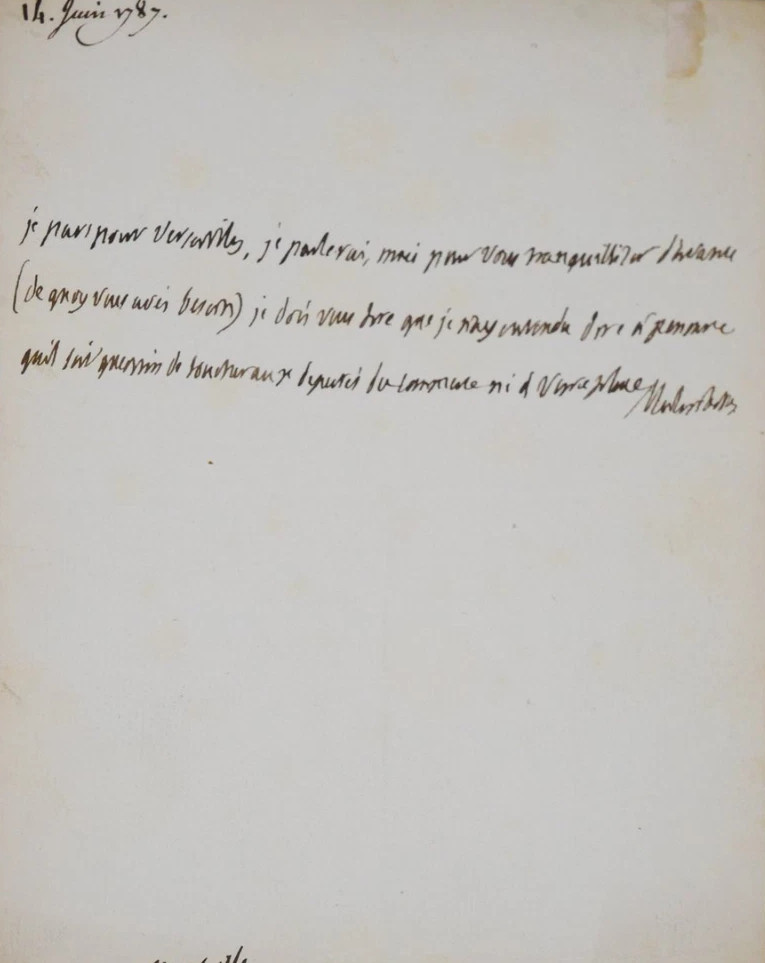 14. Juin 1787.
je pars pour Versailles, je parlerai, mais pour vous tranquilliser d'avance
(de quoy vous avés besoin) je dois vous dire que je n'ay entendu dire à personne
qu'il soit question de toucher aux deputés du commerce ni à votre place
Malesherbes